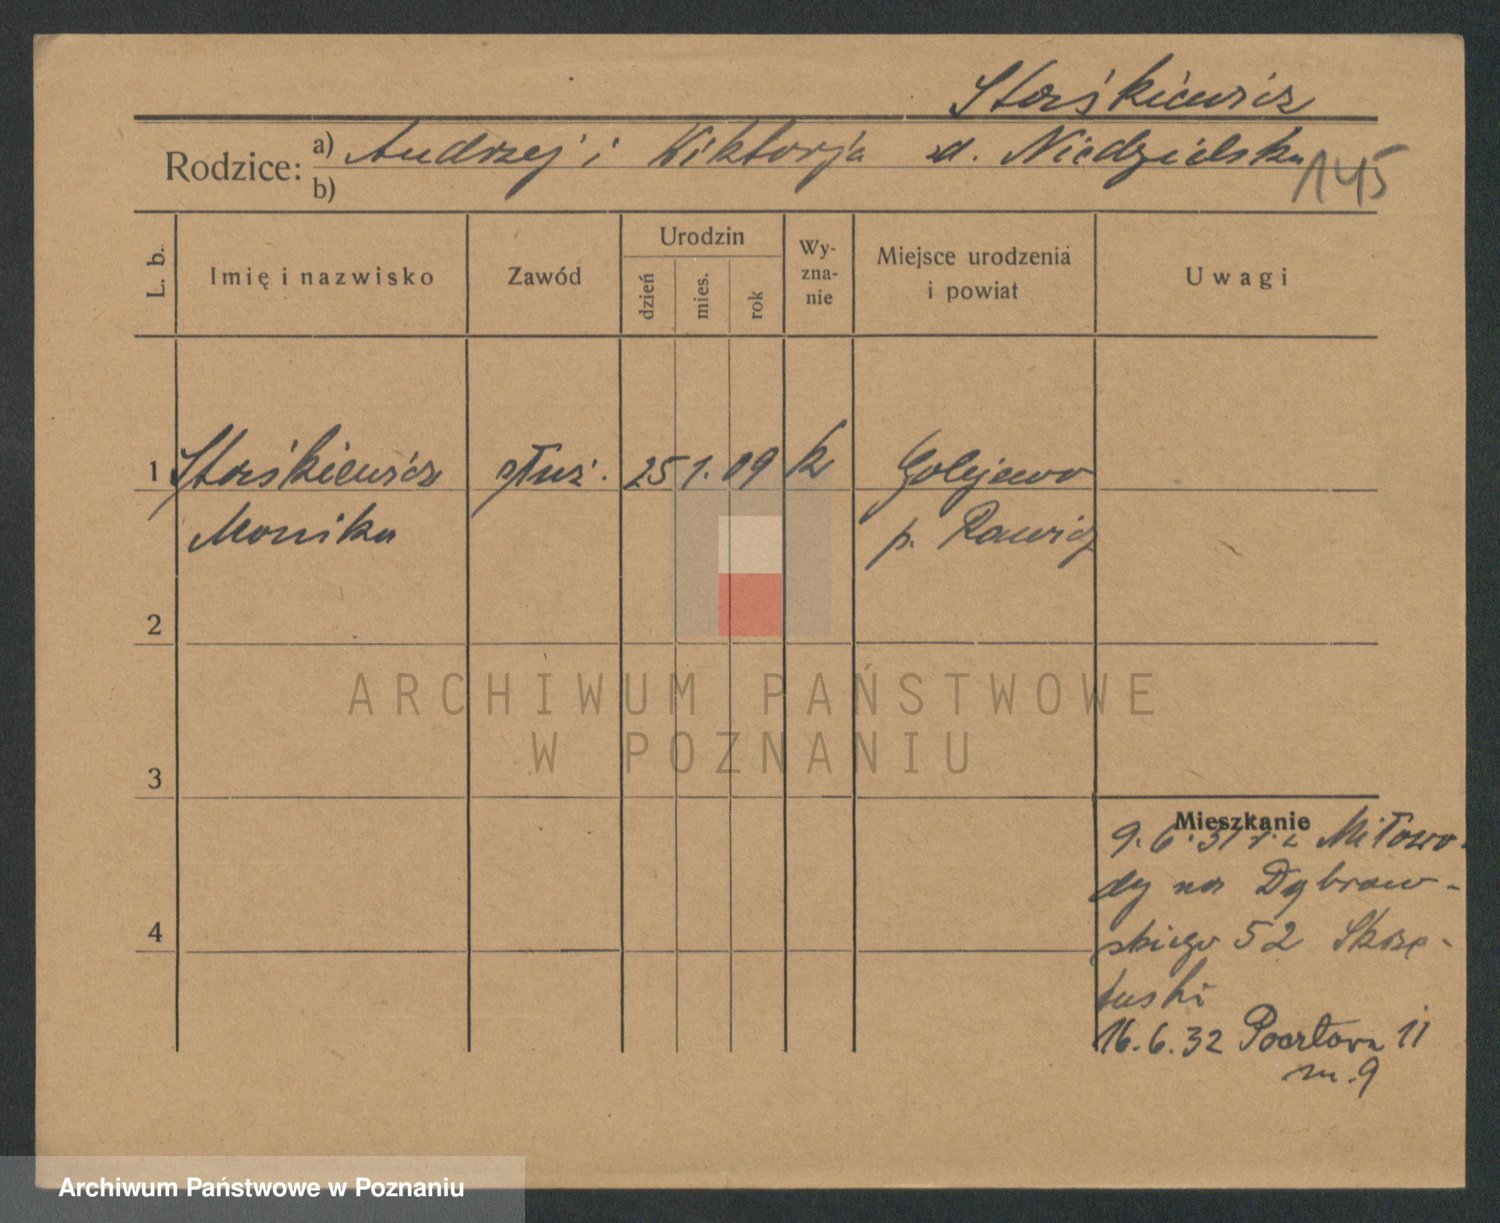 Staśkiewicz
Rodzice: a) Andrzej i Wiktorja zd. Niedzielska
b)
145
L. b.
Imię i nazwisko
Zawód
Urodzin
dzień
mies.
rok
Wy-
zna-
nie
Miejsce urodzenia
i powiat
Uwagi
1 Staśkiewicz służ. 25 1. 09 k Golejewo
Monika p. Rawicz
2
3
4
Mieszkanie
9. 6. 31 r. z Miłowo-
dy na Dąbrow-
skiego 52 Skrze-
tuski
16. 6. 32 Pocztowa 11
m. 9
ARCHIWUM PAŃSTWOWE
W POZNANIU
Archiwum Państwowe w Poznaniu